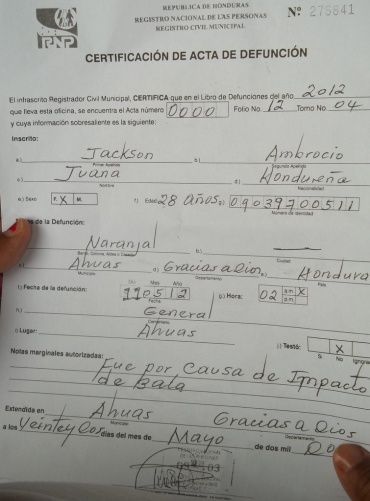 REPUBLICA DE HONDURAS
REGISTRO NACIONAL DE LAS PERSONAS
REGISTRO CIVIL MUNICIPAL
Nº 275841
RNP
CERTIFICACIÓN DE ACTA DE DEFUNCIÓN
El infrascrito Registrador Civil Municipal, CERTIFICA que en el Libro de Defunciones del año 2012
que lleva esta oficina, se encuentra el Acta número 0000 Folio No. 12 Tomo No. 04
y cuya información sobresaliente es la siguiente:
Inscrito:
a) Jackson b) Ambrocio
Primer Apellido Segundo Apellido
c) Juana d) Hondureña
Nombre Nacionalidad
e) Sexo F. X M. f) Edad 28 años g) 0903970051
Número de Identidad
de la Defunción:
Naranjal b)
Barrio, Colonia, Aldea o Caserío Ciudad
Ahuas d) Gracias a Dios e) Hondura
Municipio Departamento País
Día Mes Año
f) Fecha de la defunción: 110512 g) Hora: 02 a.m X
Fecha p.m
h) General
i) Lugar: Ahuas
j) Testó: X
Si No Ignora
Notas marginales autorizadas: Fue por causa de Impacto
de Bala
Extendida en Ahuas Gracias a Dios
Municipio Departamento
a los Veintey Dos días del mes de Mayo de dos mil Do